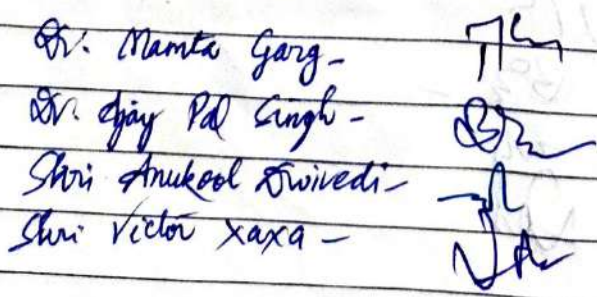 Dr. Mamta Garg -
Dr. Ajay Pal Singh -
Shri Anukool Dwivedi -
Shri Victor Xaxa -